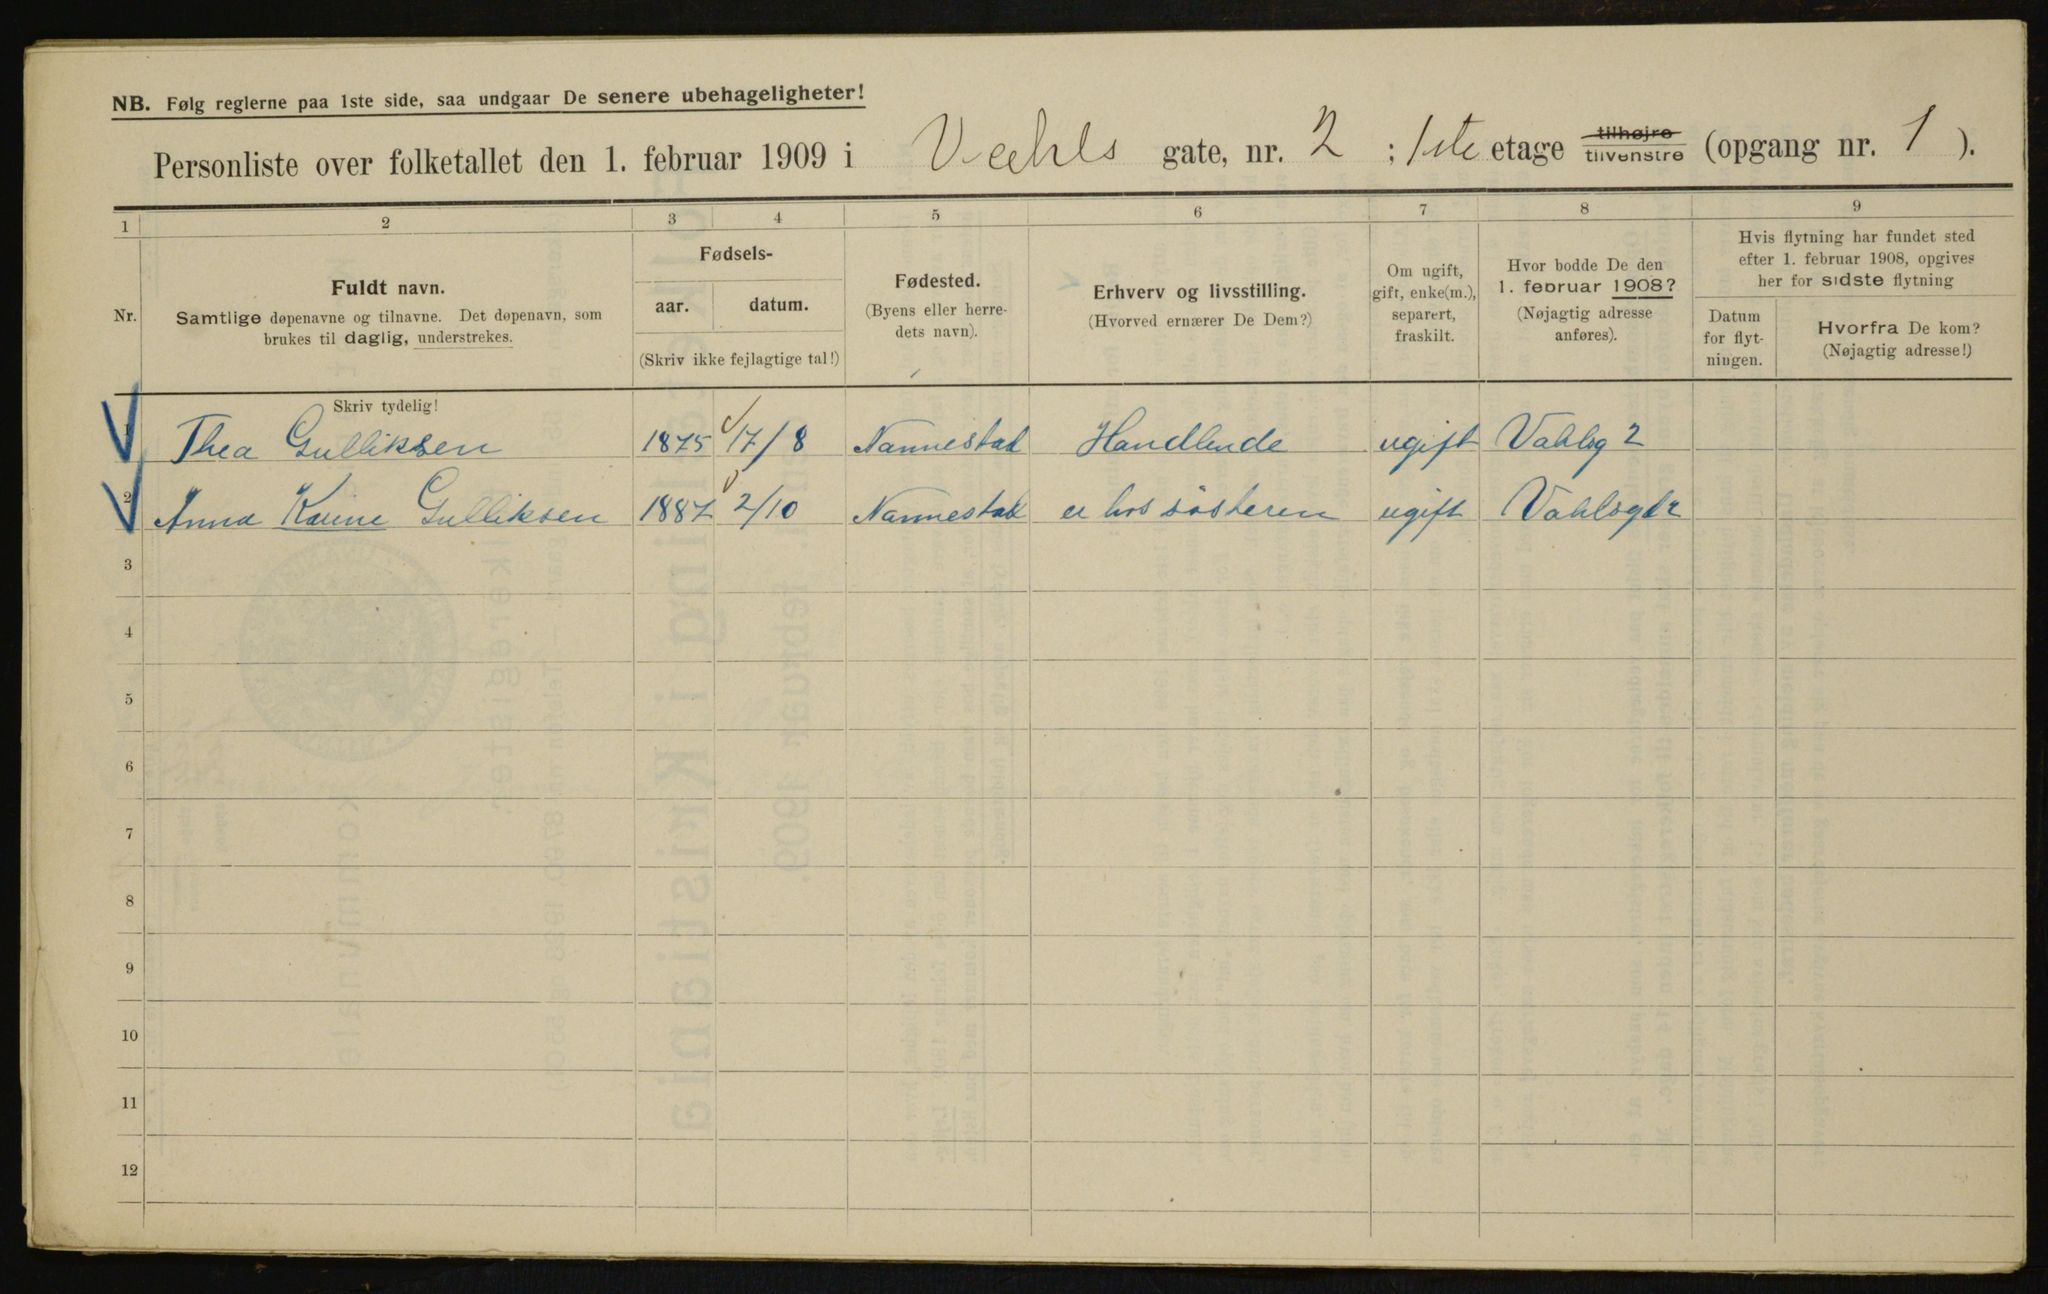 NB. Følg reglerne paa 1ste side, saa undgaar De senere ubehageligheter!
Personliste over folketallet den 1. februar 1909 i Vahls gate, nr. 2 ; 1ste etage tilhøjre tilvenstre (opgang nr. 1 ).
1 2 3 4 5 6 7 8 9
Nr.
Fuldt navn.
Samtlige døpenavne og tilnavne. Det døpenavn, som
brukes til daglig, understrekes.
Fødsels-
aar. datum.
(Skriv ikke fejlagtige tal!)
Fødested.
(Byens eller herre-
dets navn).
Erhverv og livsstilling.
(Hvorved ernærer De Dem?)
Om ugift,
gift, enke(m.),
separert,
fraskilt.
Hvor bodde De den
1. februar 1908?
(Nøjagtig adresse
anføres).
Hvis flytning har fundet sted
efter 1. februar 1908, opgives
her for sidste flytning
Datum
for flyt-
ningen.
Hvorfra De kom?
(Nøjagtig adresse!)
Skriv tydelig!
1 Thea Gulliksen 1875 17/8 Nannestad Handlende ugift Vahlsg 2
2 Anna Karine Gulliksen 1887 2/10 Nannestad er hos søsteren ugift Vahlsgt 2
3
4
5
6
7
8
9
10
11
12